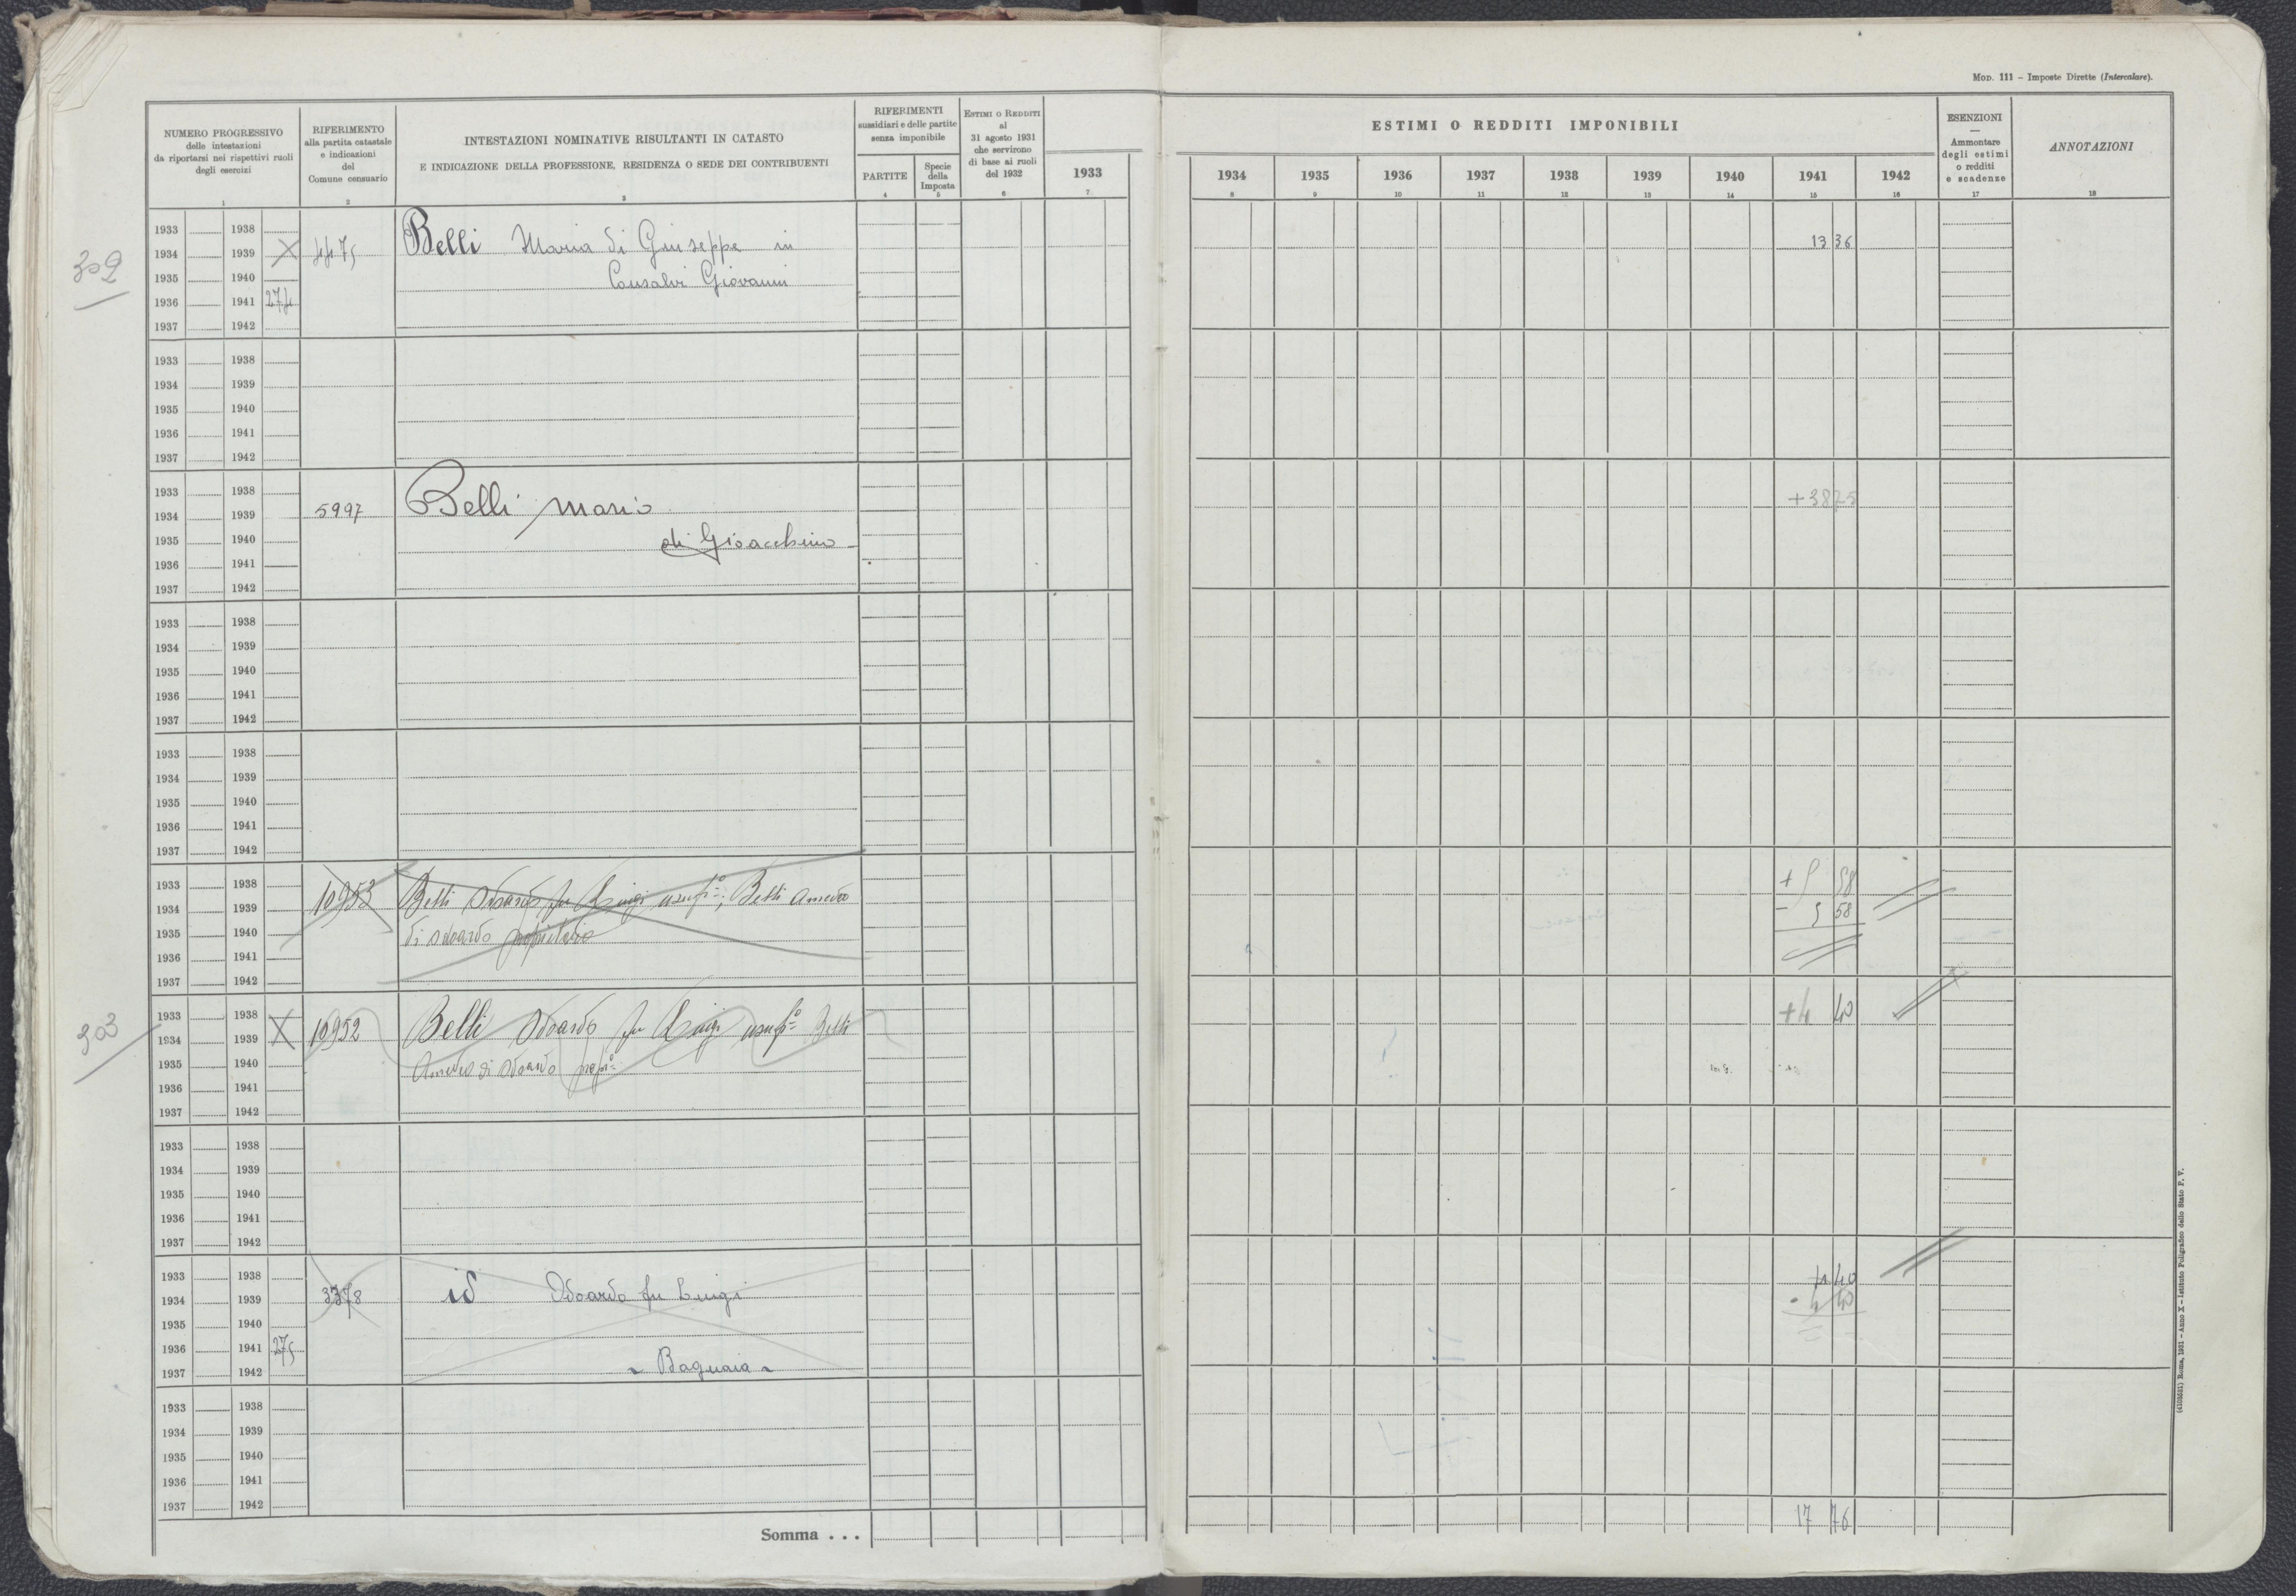 Mod. 111 – Imposte Dirette (Intercalare).
NUMERO PROGRESSIVO
delle intestazioni
da riportarsi nei rispettivi ruoli
degli esercizi
1
RIFERIMENTO
alla partita catastale
e indicazioni
del
Comune censuario
2
INTESTAZIONI NOMINATIVE RISULTANTI IN CATASTO
E INDICAZIONE DELLA PROFESSIONE, RESIDENZA O SEDE DEI CONTRIBUENTI
3
RIFERIMENTI
sussidiari e delle partite
senza imponibile
PARTITE
4
Specie
della
Imposta
5
Estimi o Redditi
al
31 agosto 1931
che servirono
di base ai ruoli
del 1932
6
1933
7
ESTIMI O REDDITI IMPONIBILI
1934 1935 1936 1937 1938 1939 1940 1941 1942
8 9 10 11 12 13 14 15 16
ESENZIONI
—
Ammontare
degli estimi
o redditi
e scadenze
17
ANNOTAZIONI
18
302
1933 1938
1934 1939 X 4475 Belli Maria di Giuseppe in 13 36
1935 1940 Consalvi Giovanni
1936 1941 274
1937 1942
1933 1938
1934 1939
1935 1940
1936 1941
1937 1942
1933 1938
1934 1939 5997 Belli Mario +38 75
1935 1940 di Gioacchino
1936 1941
1937 1942
1933 1938
1934 1939
1935 1940
1936 1941
1937 1942
1933 1938
1934 1939
1935 1940
1936 1941
1937 1942
1933 1938 + 5 58
1934 1939 10953 Belli Odoardo fu Luigi usufº; Belli Amedeo - 5 58
1935 1940 di Odoardo proprietario
1936 1941
1937 1942
303
1933 1938 +4 40
1934 1939 X 10952 Belli Odoardo fu Luigi usufº Belli
1935 1940 Amedeo di Odoardo propº
1936 1941
1937 1942
1933 1938
1934 1939
1935 1940
1936 1941
1937 1942
1933 1938 4 40
1934 1939 3378 id Odoardo fu Luigi - 4 40
1935 1940
1936 1941 275
1937 1942 Bagnaia
1933 1938
1934 1939
1935 1940
1936 1941
1937 1942
Somma . . . 17 76
(4103631) Roma, 1931 – Anno X – Istituto Poligrafico dello Stato P. V.